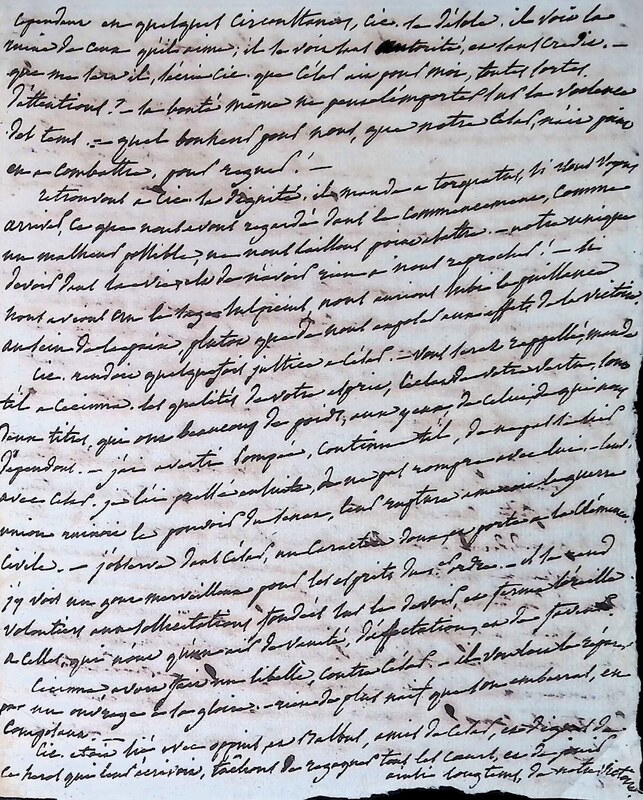 cependant en quelques circonstances, Cic. se désole. il voit la
ruine de ceux qu'il aime, il se voit sans autorité, et sans crédit. —
que me sert il, écrit Cic. que César ait pour moi, toutes sortes
d'attentions? — sa bonté même ne peut l'emporter sur la violence
des tems. — quel bonheur pour nous, que notre César, n'ait point
eu a combattre, pour regner! —
retrouvons a Cic. sa dignité. il mande a torquatus, si nous voyons
arriver, ce que nous avons regardé dans le commencement, comme
un malheur possible, ne nous laissons point abattre. — notre unique
devoir dans la vie, est de n'avoir rien a nous reprocher! — si
nous avions cru le sage Sulpicius, nous aurions subi la puissance
au sein de la paix, plutôt que de nous exposer aux effets de la victoire
Cic. rendoit quelquefois justice a César. — vous serez rappellé, mande
t'il a Cecinna. les qualités de votre esprit, l'éclat de votre vertu, sont
deux titres, qui ont beaucoup de poids, aux yeux, de celui, de qui nous
dépendons. — j'ai averti Pompée, continue t'il, de ne pas s'unir
avec César. je l'ai pressé ensuite, de ne pas rompre avec lui. — leur
union ruinoit le pouvoir du sénat, leur rupture amenoit la guerre
civile. — j'observe dans César, un caractère doux, qui porte a la clémence
j'y vois un gout merveilleux pour les esprits du 1er ordre. — il se rend
volontiers aux sollicitations fondées sur le devoir, et ferme l'oreille
a celles, qui n'ont qu'un air de vanité d'affectation, et de
Cecinna avoit fait un libelle, contre César. — il vouloit le réparer
par un ouvrage a sa gloire. — rien de plus naïf que son embarras, en
composant. —
Cic. etait lié avec oppius et Balbus, amis de César, et dignes de
ce heros qui leur écrivoit, tâchons de regagner tous les coeurs, et de jouir
ainsi longtems, de notre victoire.